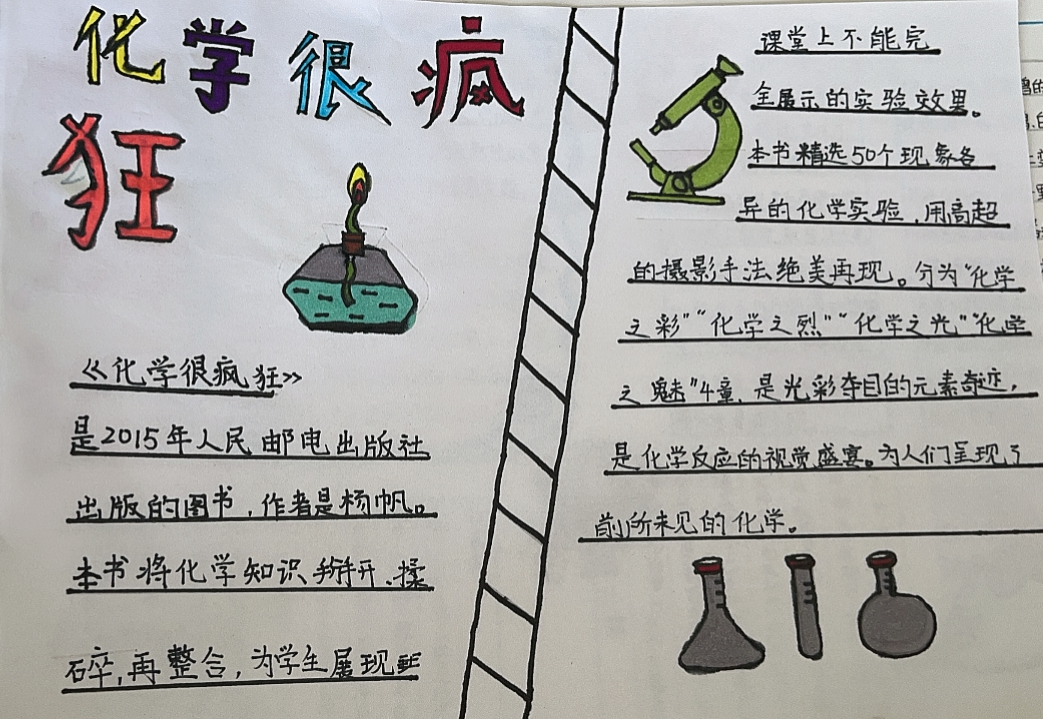 化学很疯
狂
《化学很疯狂》
是2015年人民邮电出版社
出版的图书，作者是杨帆。
本书将化学知识、掰开、揉
碎，再整合，为学生展现
课堂上不能完
全展示的实验效果。
本书精选50个现象各
异的化学实验，用高超
的摄影手法绝美再现。分为“化学
之彩”“化学之烈”“化学之光”“化学
之魅”4章，是光彩夺目的元素奇迹，
是化学反应的视觉盛宴。为人们呈现了
前所未见的化学。